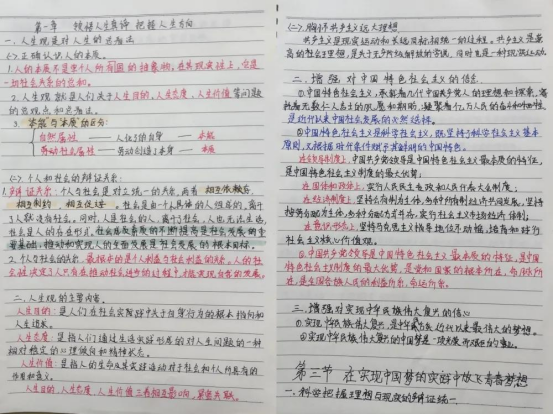 第一章 领悟人生真谛 把握人生方向
一、人生观是对人生的总看法
(一)正确认识人的本质。
1.人的本质不是单个人所有固的抽象物,在其现实性上,它是
一切社会关系的总和。
2.人生观就是人们关于人生目的、人生态度、人生价值等问题
的总观点和总看法。
3.本能与本质的区分:
自然属性 —— 人化了的自身 —— 本能
劳动社会属性 —— 劳动创造了本身 —— 本质
(二)个人和社会的辩证关系:
1.辩证关系:个人与社会是对立统一的关系,两者相互依赖、
相互制约、相互促进。社会是由一个个具体的人组成的,离开
了人就没有社会,同时,人是社会的人,离开了社会,人也无法生活。
社会发展的根本目标。
2.个人与社会的关系,最根本的是个人利益与社会利益的关系,人的社
二、人生观的主要内容。
人生目的:是人们在社会实践中关于自身行为的根本指向和
人生追求。
人生态度:是指人们通过生活实践形成的对人生问题的一种
相对稳定的心理倾向和精神状态。
人生价值:是指人的生命及其实践活动对于社会和个人所具有的
作用和意义。
人生目的、人生态度、人生价值三者相互影响,紧密关联。
(二)胸怀共产主义远大理想
共产主义是现实运动和长远目标相统一的过程。共产主义是最
高的社会理想,
二、增强对中国特色社会主义的信念
①中国特色社会主义,承载着几代中国共产党人的理想和探索,寄
托着无数仁人志士的夙愿和期盼,凝聚着亿万人民的奋斗和牺牲
是近代以来中国社会发展的必然选择。
②中国特色社会主义是科学社会主义,既坚持了科学社会主义基本
原则,又根据时代条件赋予其鲜明的中国特色。
在领导制度上,中国共产党领导是中国特色社会主义最本质的特征,
是中国特色社会主义制度的最大优势;
在国体和政体上,实行人民民主专政和人民代表大会制度;
在经济制度上,
按劳分配为主体、多种分配方式并存,实行社会主义市场经济体制;
在意识形态上,坚持马克思主义指导地位不动摇,培育和践行
社会主义核心价值观。
③中国共产党领导是中国特色社会主义最本质的特征,是中国
特色社会主义制度的最大优势,是党和国家的根本所在、命脉所
在,是全国各族人民的利益所系、命运所系。
三、增强对实现中华民族伟大复兴的信心
①实现中华民族伟大复兴,是中华民族近代以来最伟大的梦想。
②实现中华民族伟大复兴的中国梦是一项光荣而艰巨的事业。
第三节 在实现中国梦的实践中放飞青春梦想
一、科学把握理想与现实的辩证统一